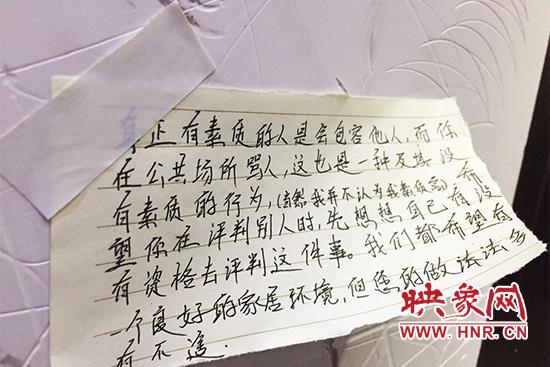 真正有素质的人是会包容他人,而你
在公共场所骂人,这也是一种及其没
有素质的行为,(当然我并不认为我高)希
望你在评判别人时,先想想自己有没
有资格去评判这件事。我们都希望有
一个良好的家居环境,但您的做法多
有不适.
映象网
WWW.HNR.CN